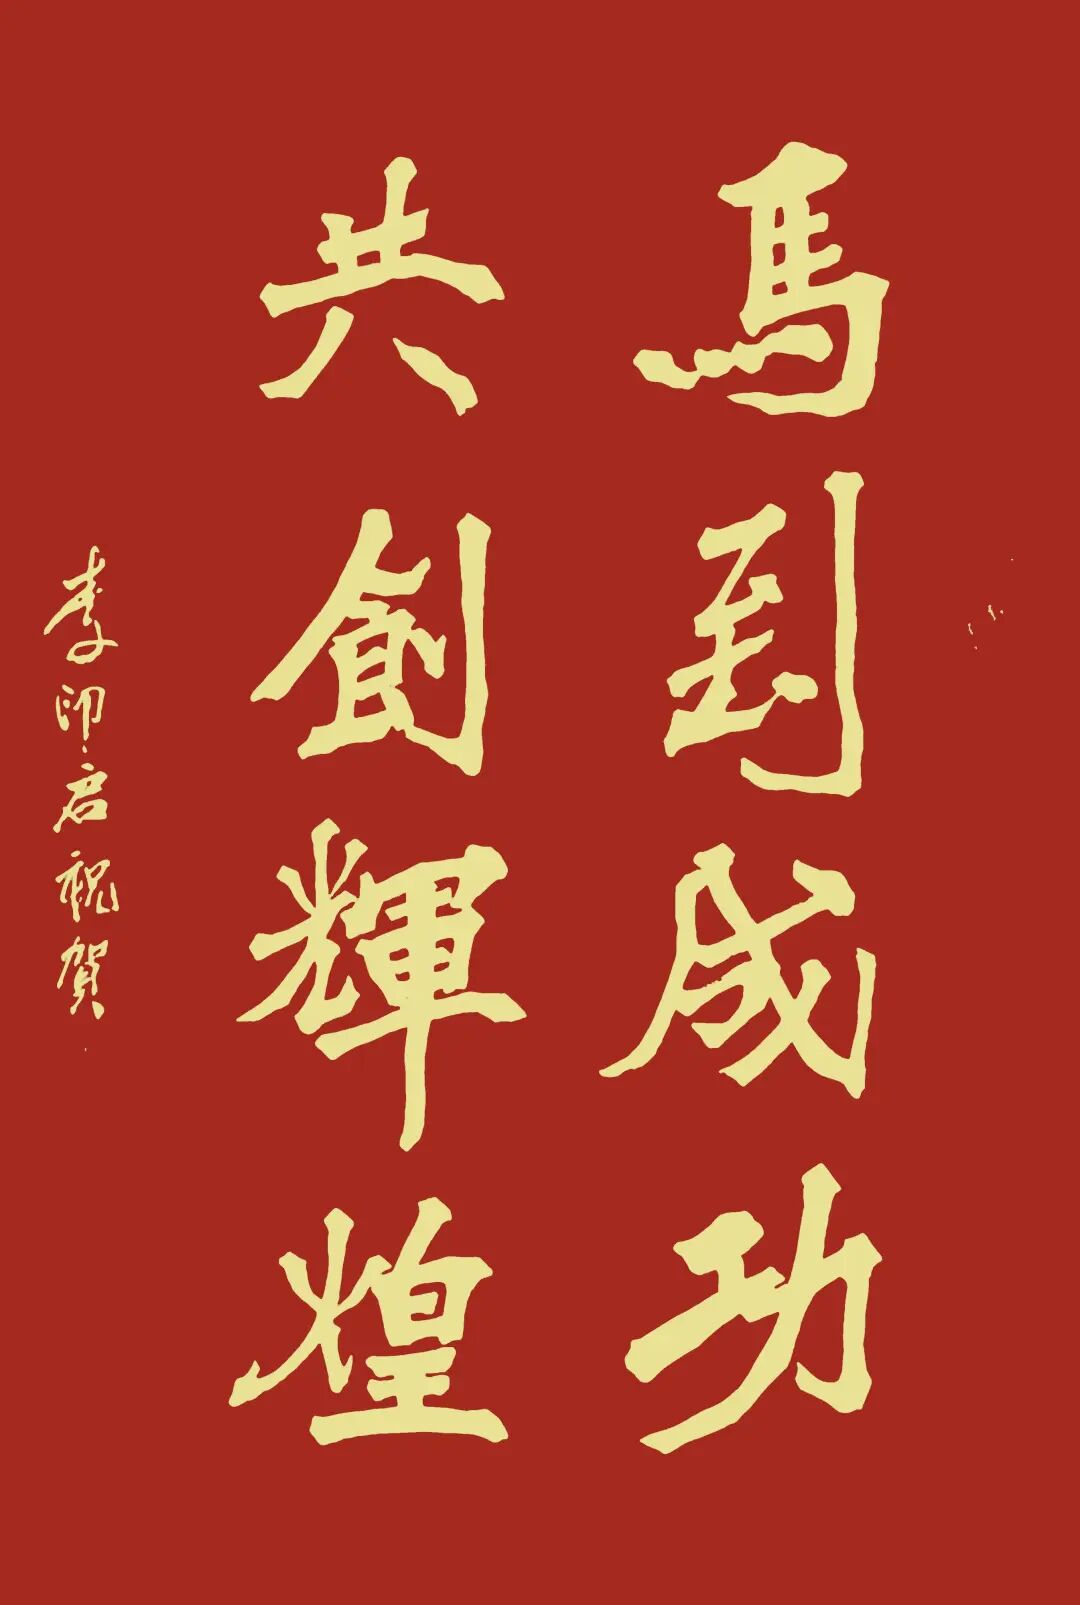 馬到成功
共創輝煌
李印启祝賀